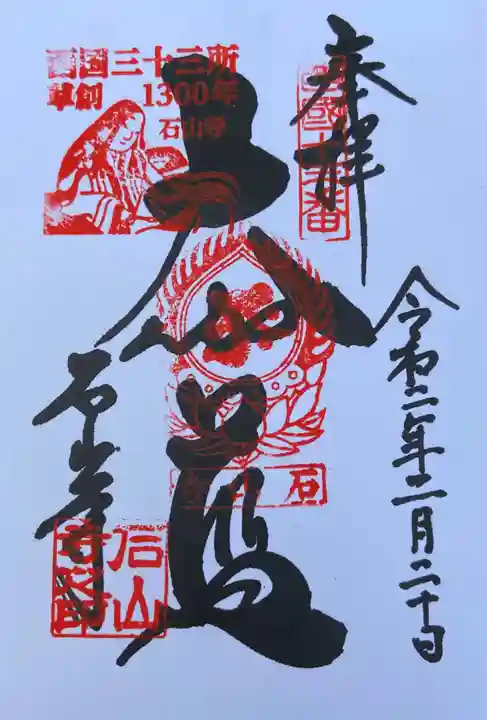 奉拝
西国十三番
令和二年二月二十日
西国三十三所
草創 1300年
石山寺
大伽藍
石山寺
石山